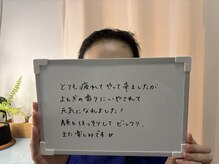 とても疲れてやって来ましたが
よもぎの香りにいやされて
元気になれました!
顔もはっきりして ビックリ
また楽しみです